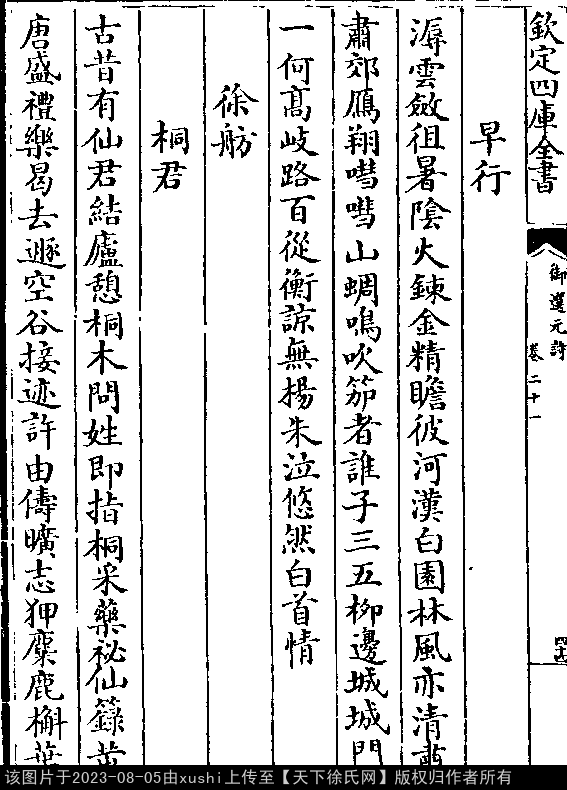 欽定四庫全書
御選元詩
卷二十一
早行
潺雲斂徂暑陰火鍊金精瞻彼河漢白園林風亦清肅
肅郊鴈翔嘒嘒山蜩鳴吹笳者誰子三五柳邊城城門
一何髙岐路百從衡諒無揚朱泣悠然白首情
徐舫
桐君
古昔有仙君結廬憩桐木問姓即指桐采藥祕仙籙黄
唐盛禮樂曷去遯空谷接迹許由儔曠志狎麋鹿槲葉
该图片于2023-08-05由xushi上传至【天下徐氏网】版权归作者所有